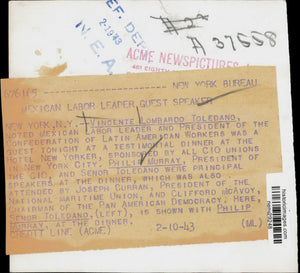 REF. DEP
2-1943
N. E. A.
#2
A 37558
ACME NEWSPICTURES
461 EIGHTH
NEW YORK BUREAU
MEXICAN LABOR LEADER GUEST SPEAKER
NEW YORK, N.Y. -- VINCENTE LOMBARDO TOLEDANO,
NOTED MEXICAN LABOR LEADER AND PRESIDENT OF THE
CONFEDERATION OF LATIN AMERICAN WORKERS WAS A
GUEST TONIGHT AT A TESTIMONIAL DINNER AT THE
HOTEL NEW YORKER, SPONSORED BY ALL CIO UNIONS
IN NEW YORK CITY. PHILIP MURRAY, PRESIDENT OF
THE CIO, AND SENOR TOLEDANO WERE PRINCIPAL
SPEAKERS AT THE DINNER, WHICH WAS ALSO
ATTENDED BY JOSEPH CURRAN, PRESIDENT OF THE
NATIONAL MARITIME UNION, AND CLIFFORD McAVOY,
CHAIRMAN OF THE PAN AMERICAN DEMOCRACY; HERE,
SENOR TOLEDANO, (LEFT), IS SHOWN WITH PHILIP
MURRAY, AT THE DINNER.
CREDIT LINE (ACME) 2-10-43 (ML)
historicimages.com